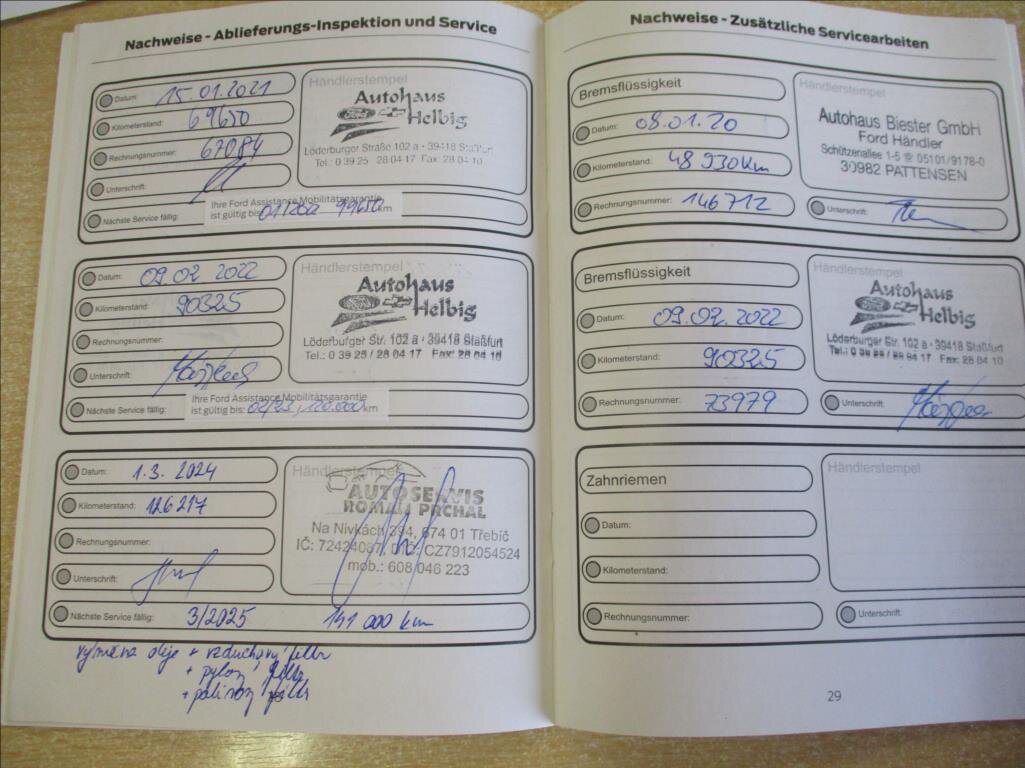 Nachweise - Ablieferungs-Inspektion und Service
Datum: 15.01.2021
Kilometerstand: 69650
Rechnungsnummer: 67084
Unterschrift:
Nächste Service fällig:
Ihre Ford Assistance Mobilitätsgarantie
ist gültig bis: 01/2022 99650 km
Händlerstempel
Autohaus
Ford Helbig
Löderburger Straße 102 a · 39418 Staßfurt
Tel.: 0 39 25 28 04 17 Fax 28 04 10
Datum: 09.02.2022
Kilometerstand: 90325
Rechnungsnummer:
Unterschrift:
Nächste Service fällig:
Ihre Ford Assistance Mobilitätsgarantie
ist gültig bis: 02/23, 120.000 km
Händlerstempel
Autohaus
Helbig
Löderburger Str. 102 a · 39418 Staßfurt
Tel.: 0 39 25 / 28 04 17 Fax: 28 04 10
Datum: 1.3. 2024
Kilometerstand: 126217
Rechnungsnummer:
Unterschrift:
Nächste Service fällig: 3/2025 141 000 km
Händlerstempel
AUTOSERVIS
ROMAN PRCHAL
Na Nivkách 394, 674 01 Třebíč
IČ: 72424087, DIČ: CZ7912054524
mob.: 608 046 223
výměna oleje + vzduchový filtr
+ pylový filtr
+ palivový filtr
Nachweise - Zusätzliche Servicearbeiten
Bremsflüssigkeit
Datum: 08.01.20
Kilometerstand: 48 930 km
Rechnungsnummer: 146712
Händlerstempel
Autohaus Biester GmbH
Ford Händler
Schützenallee 1-5 ☎ 05101/9178-0
30982 PATTENSEN
Unterschrift:
Bremsflüssigkeit
Datum: 09.02.2022
Kilometerstand: 90325
Rechnungsnummer: 73979
Händlerstempel
Autohaus
Helbig
Löderburger Str. 102 a · 39418 Staßfurt
Tel.: 0 39 25 / 28 04 17 Fax: 28 04 10
Unterschrift:
Zahnriemen
Datum:
Kilometerstand:
Rechnungsnummer:
Händlerstempel
Unterschrift:
29